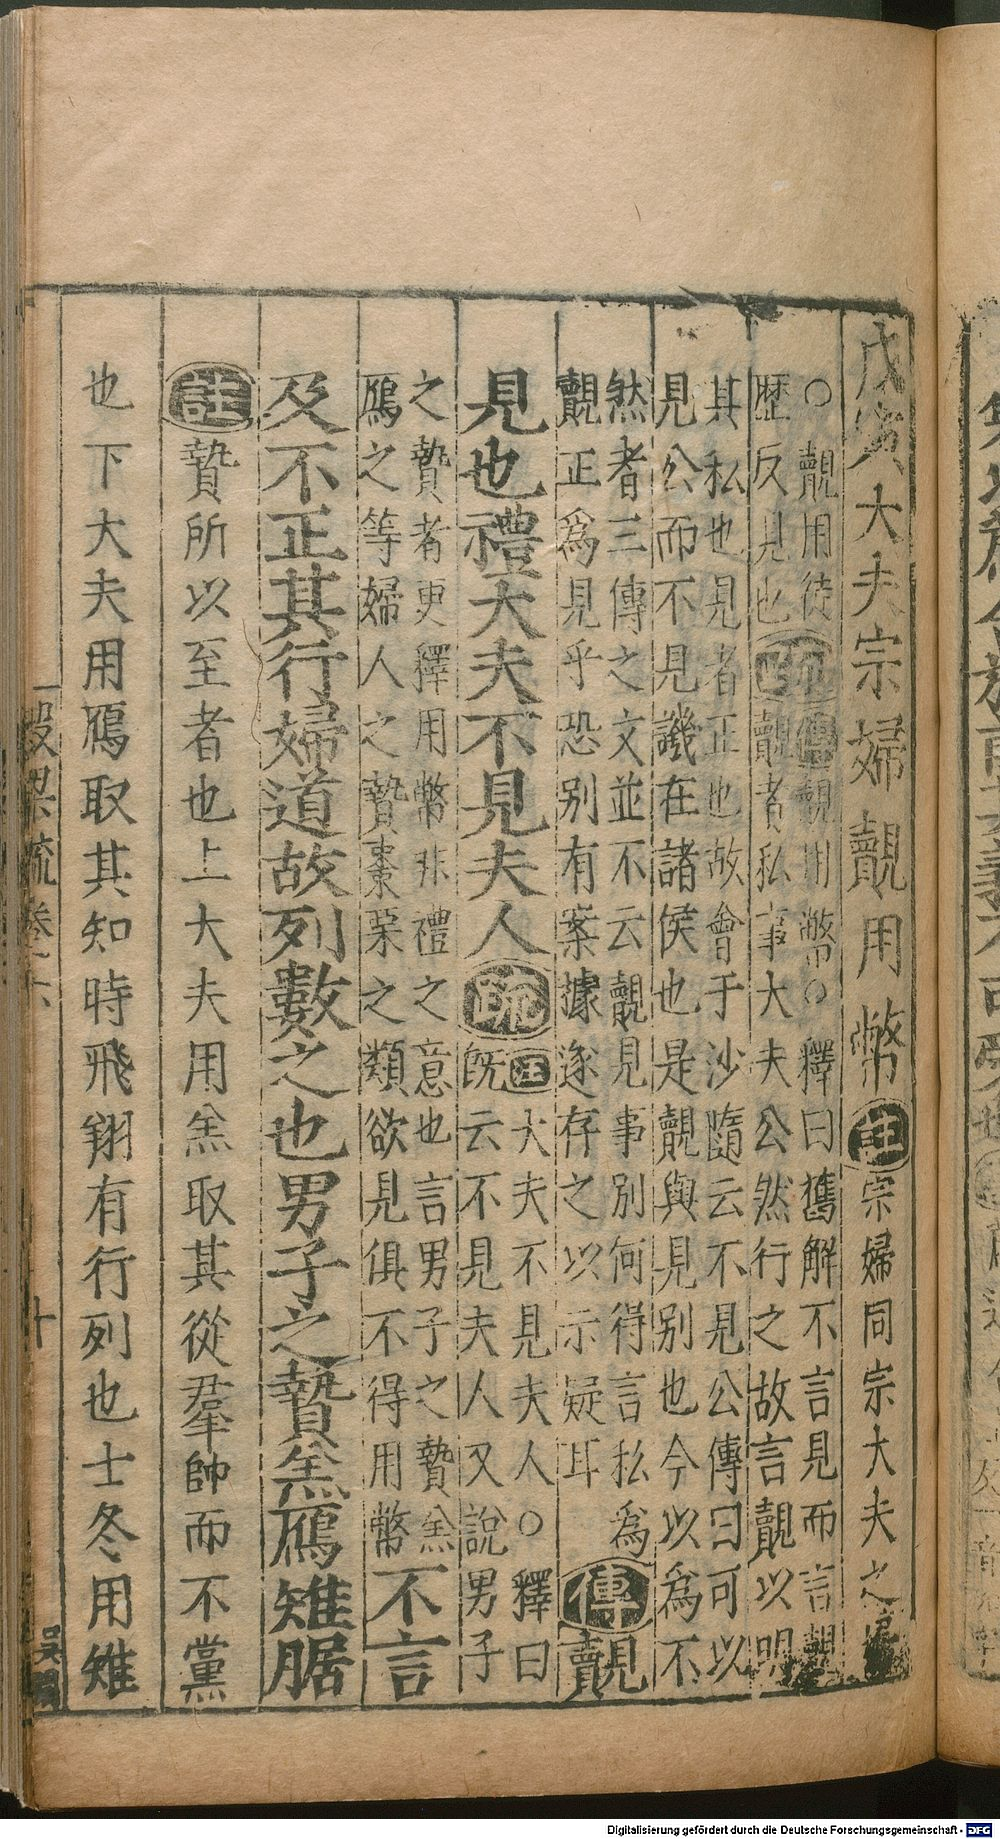 戊寅大夫宗婦覿用幣註宗婦同宗大夫之婦
○覿用徒
歷反見也疏傳覿用幣○釋曰舊解不言見而言覿
覿者私事大夫公然行之故言覿以明
其私也見者正也故會于沙隨云不見公傳曰可以
見公而不見譏在諸侯也是覿與見別也今以為不
然者三傳之文並不云覿見事別何得言私為
覿正為見乎恐別有案據遂存之以示疑耳
傳覿
見也禮大夫不見夫人疏
注大夫不見夫人○釋曰
既云不見夫人又說男子
之贄者更釋用幣非禮之意也言男子之贄羔
鴈之等婦人之贄棗栗之類欲見俱不得用幣
不言
及不正其行婦道故列數之也男子之贄羔鴈雉腒
註贄所以至者也上大夫用羔取其從羣帥而不黨
也下大夫用鴈取其知時飛翔有行列也士冬用雉
穀梁疏卷之六
十